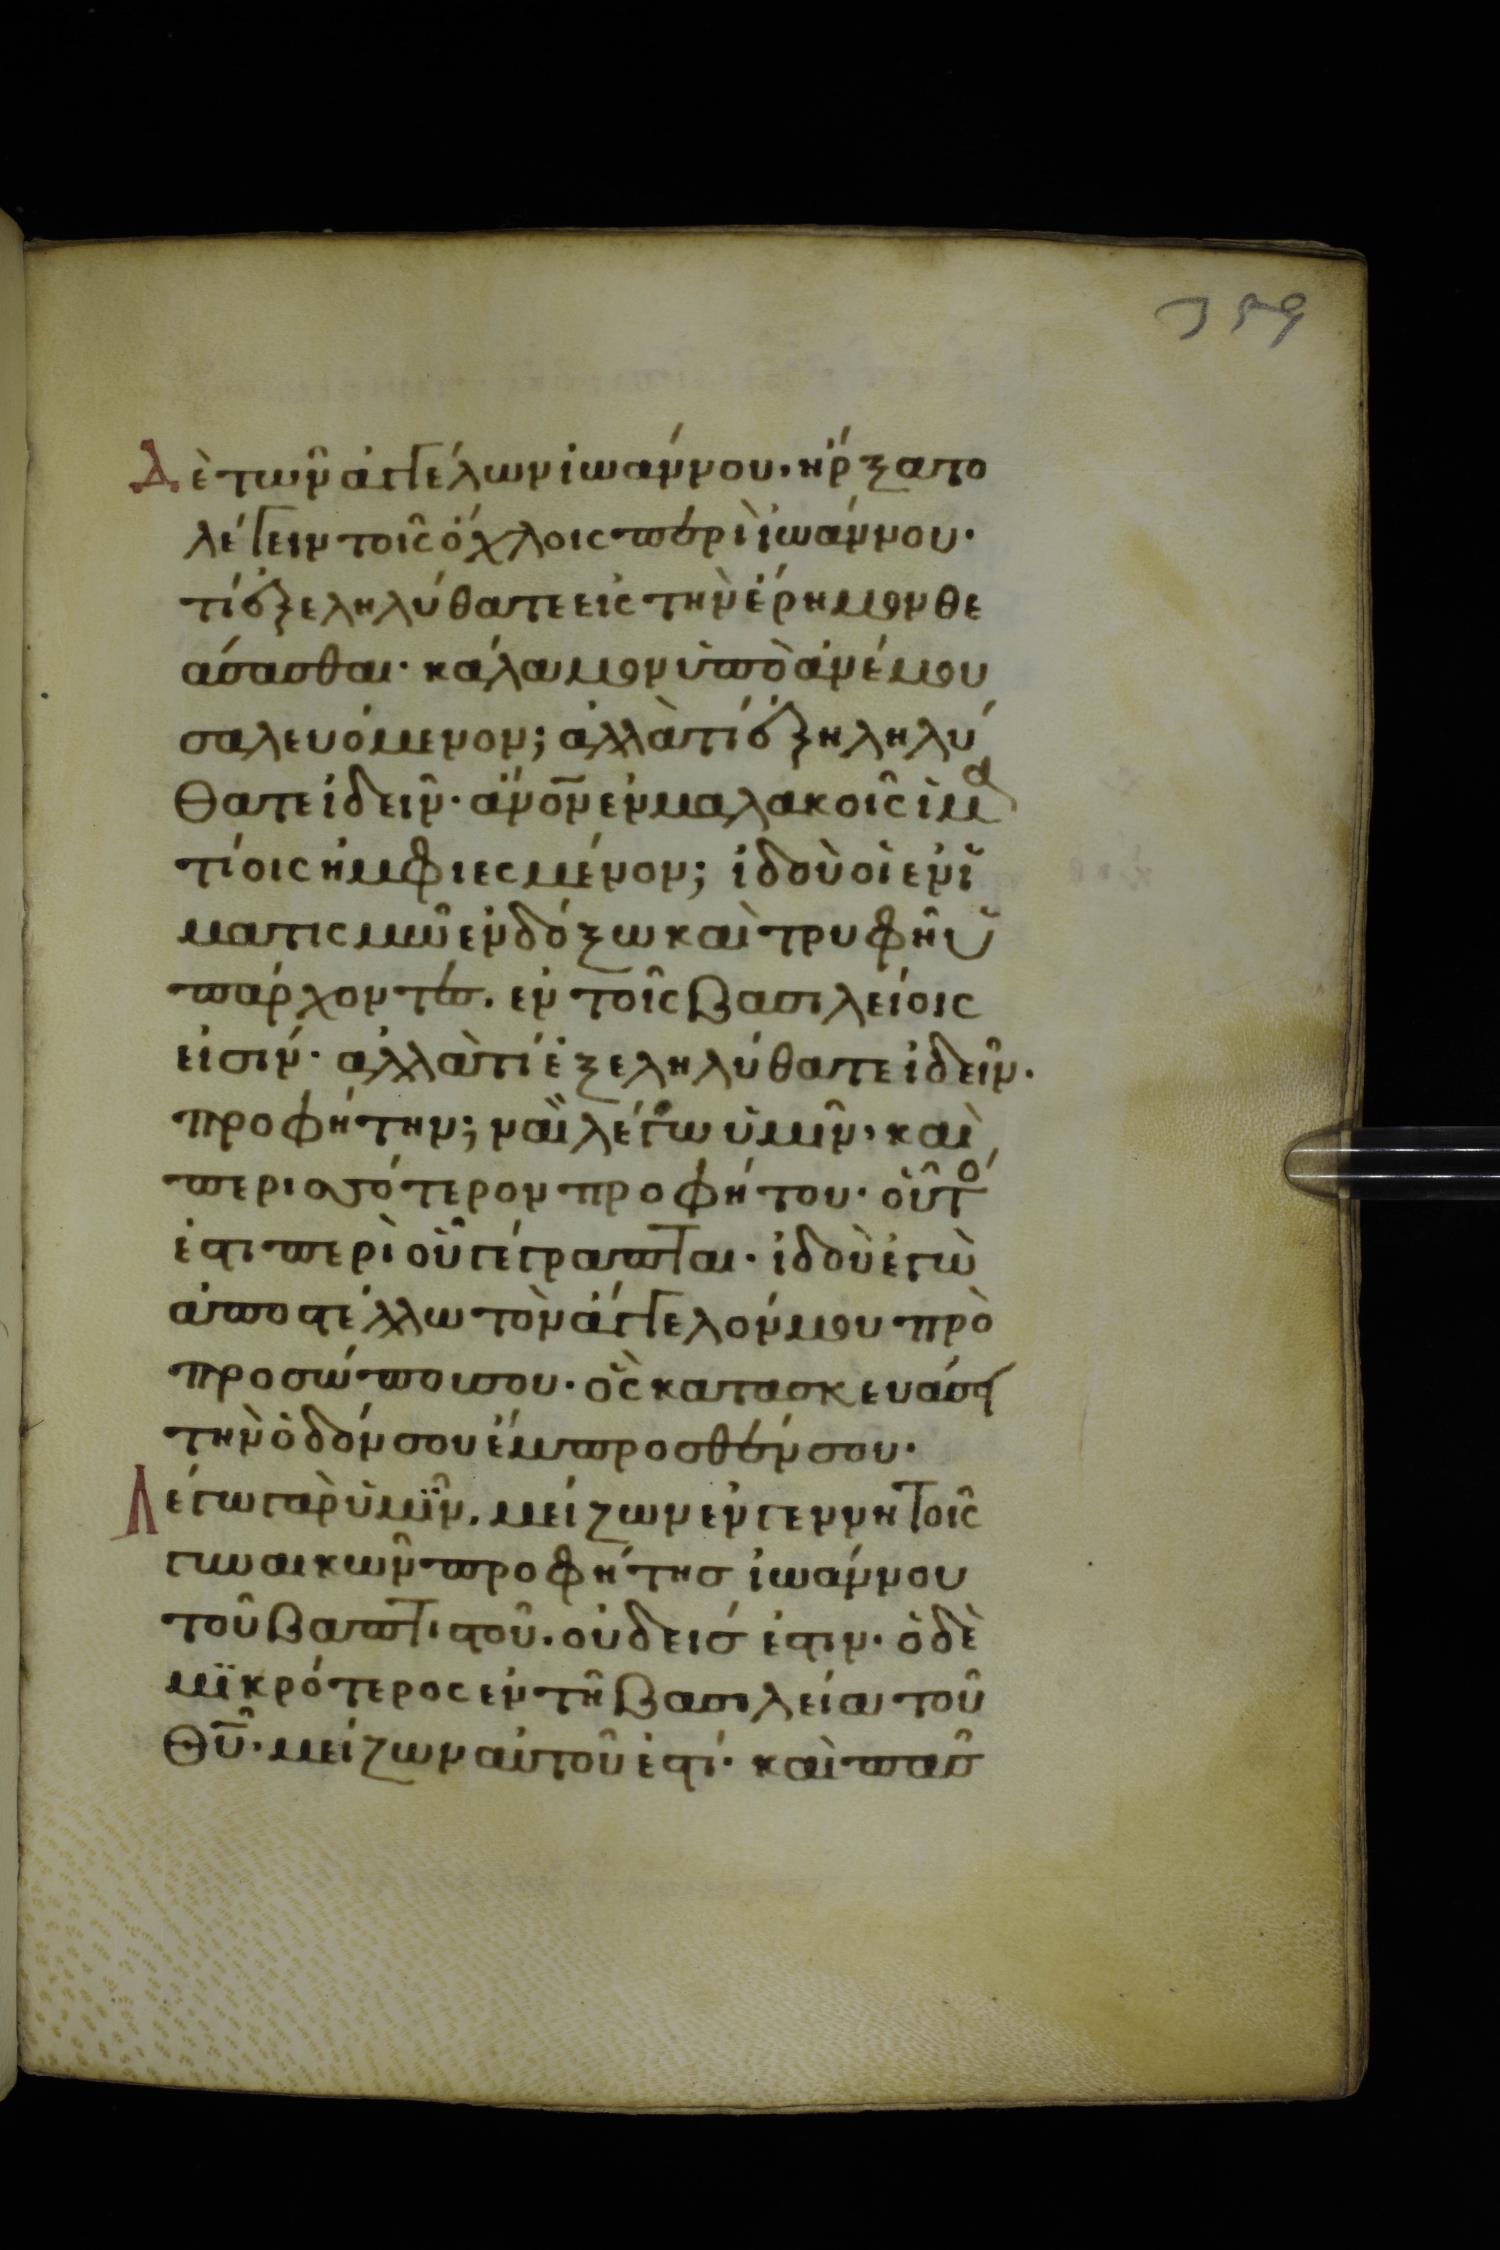 159
Δὲ τῶν ἀγγέλων ἰωάννου, ἤρξατο
λέγειν τοῖς ὄχλοις περὶ ἰωάννου·
τί ἐξεληλύθατε εἰς τὴν ἔρημον θε
άσασθαι· κάλαμον ὑπὸ ἀνέμου
σαλευόμενον; ἀλλὰ τί ἐξηληλύ
θατε ἰδεῖν· ἄνον ἐν μαλακοῖς ἱμα
τίοις ἠμφιεσμένον; ἰδοὺ οἱ ἐν ἱ
ματισμῶ ἐνδόξω καὶ τρυφῆ ὑ
πάρχοντες. ἐν τοῖς βασιλείοις
εἰσίν· ἀλλὰ τί ἐξεληλύθατε ἰδεῖν·
προφήτην; ναὶ λέγω ὑμῖν, καὶ
περισσότερον προφήτου· οὗτός
ἐστι περὶ οὗ γέγραπται· ἰδοὺ ἐγὼ
ἀποστέλλω τὸν ἄγγελόν μου πρὸ
προσώπου σου· ὃς κατασκευάσει
τὴν ὁδόν σου ἔμπροσθέν σου·
Λέγω γὰρ ὑμῖν. μείζων ἐν γεννητοῖς
γυναικῶν προφήτης ἰωάννου
τοῦ βαπτιστοῦ. οὐδείς ἐστιν· ὁ δὲ
μϊκρότερος ἐν τῆ βασιλεία τοῦ
θῦ· μείζων αὐτοῦ ἐστί· καὶ πᾶσ